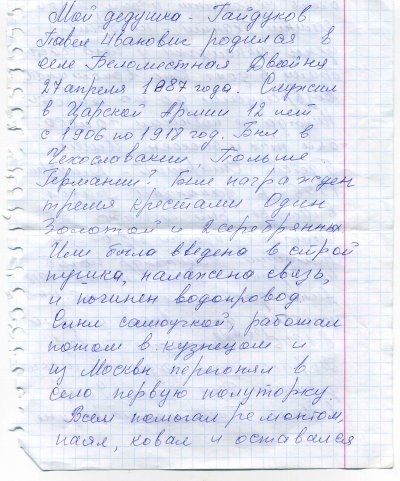 Мой дедушка - Гайдуков
Павел Иванович родился в
селе Беломестная Двойня
27 апреля 1887 года. Служил
в Царской Армии 12 лет
с 1906 по 1918 год. Был в
Чехославакии, Польше
Германии? Был награжден
тремя крестами Один
Золотой и 2 серебрянных
Им была введена в строй
пушка, налажена связь,
и починен водопровод.
Был самоучкой, работал
потом в кузнецом и
из Москвы перегонял в
село первую полуторку.
Всем помогал ремонтом,
паял, ковал и оставался